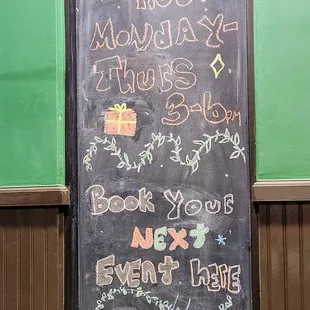 MonDAY-
Thurs
3-6pm
Book Your
NEXT
EvEnT hERE